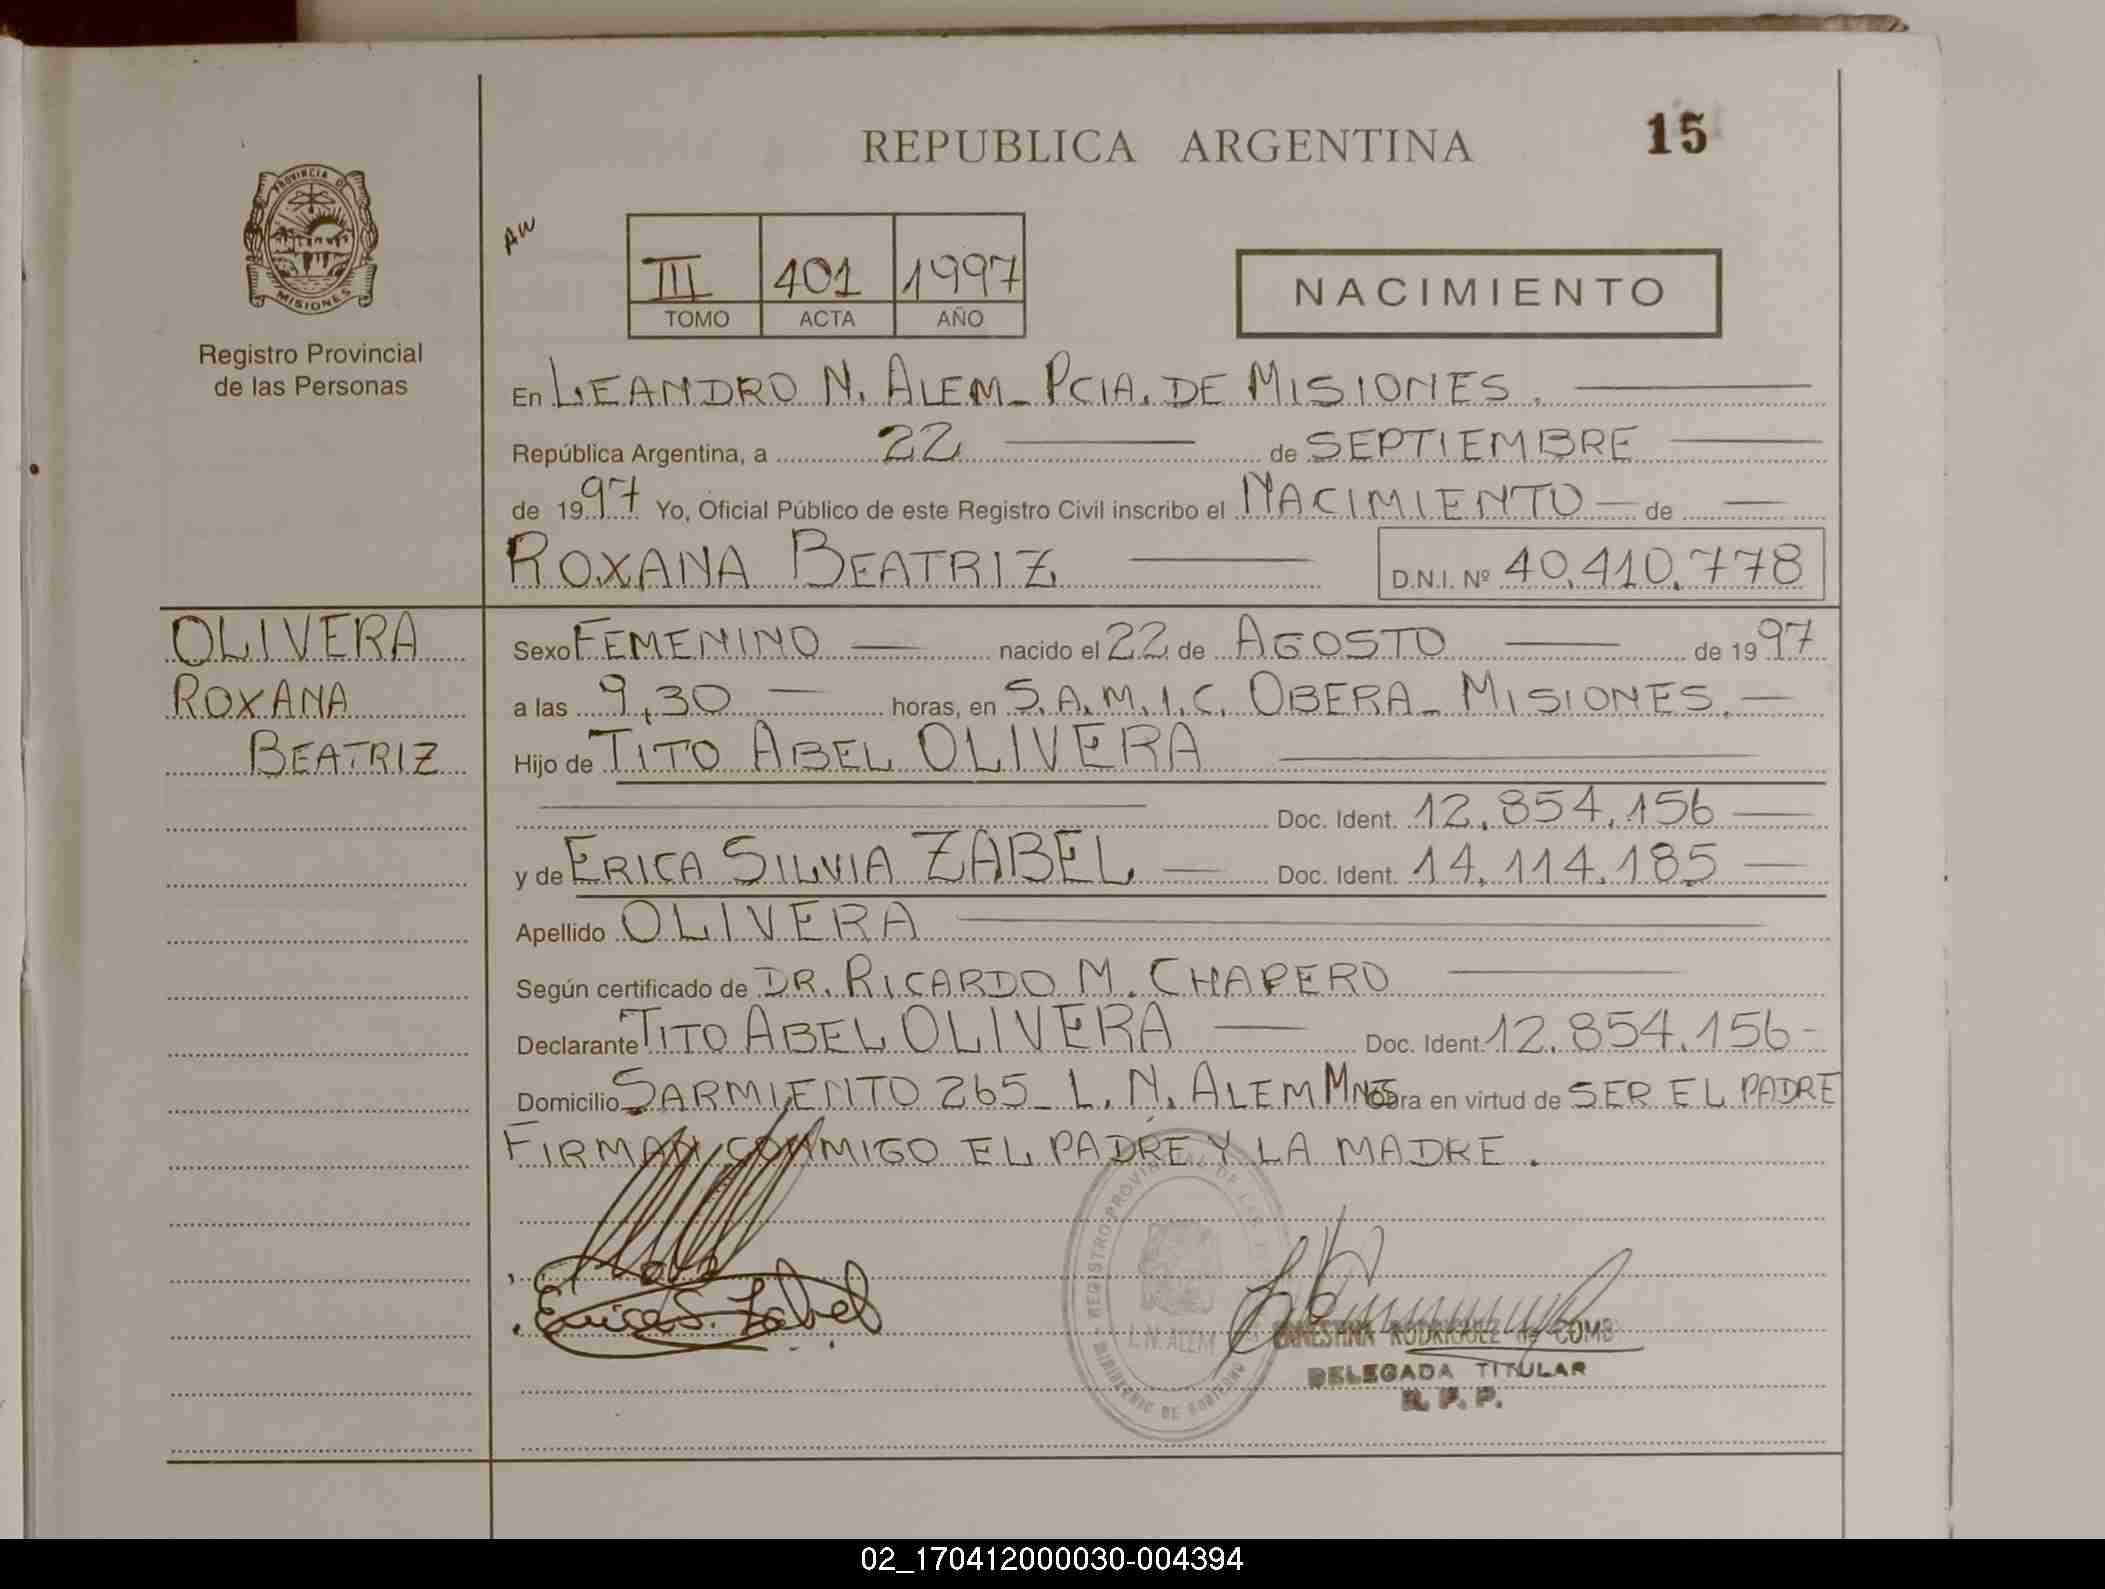 REPUBLICA ARGENTINA
15
PROVINCIA DE
MISIONES
Registro Provincial
de las Personas
AW
III 401 1997
TOMO ACTA AÑO
NACIMIENTO
En LEANDRO N. ALEM_ PCIA. DE MISIONES.
República Argentina, a 22 de SEPTIEMBRE
de 1997 Yo, Oficial Público de este Registro Civil inscribo el NACIMIENTO de
ROXANA BEATRIZ D.N.I. Nº 40.410.778
OLIVERA
ROXANA
BEATRIZ
Sexo FEMENINO nacido el 22 de AGOSTO de 1997
a las 9,30 horas, en S.A.M.I.C. OBERA_ MISIONES.
Hijo de TITO ABEL OLIVERA
Doc. Ident. 12.854.156
y de ERICA SILVIA ZABEL Doc. Ident. 14.114.185
Apellido OLIVERA
Según certificado de DR. RICARDO M. CHAPERO
Declarante TITO ABEL OLIVERA Doc. Ident. 12.854.156-
Domicilio SARMIENTO 265_ L. N. ALEM MNES obra en virtud de SER EL PADRE
FIRMAN CONMIGO EL PADRE Y LA MADRE.
Erica S. Zabel
REGISTRO PROVINCIAL DE LAS
L.N. ALEM
MINISTERIO DE GOBIERNO
ERNESTINA RODRIGUEZ de COMB
DELEGADA TITULAR
R. P. P.
02_170412000030-004394